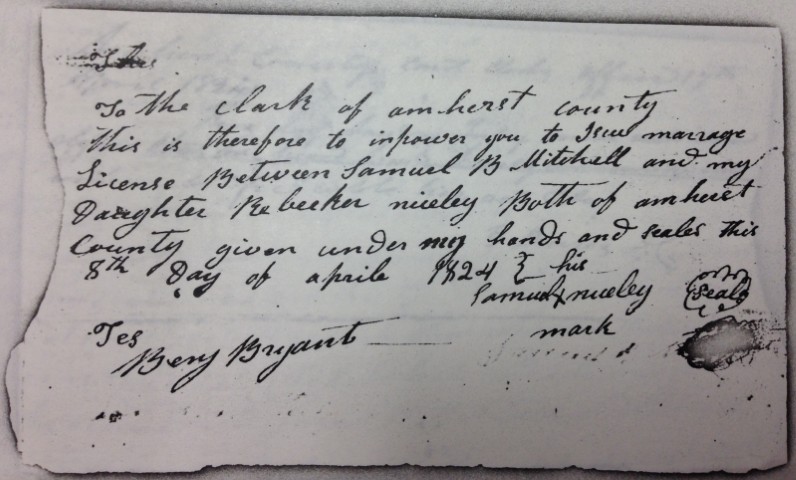 To the clark of amherst county
this is therefore to inpower you to Isue marrage
License Between Samuel B Mitchell and my
Daughter Rebecker niceley Both of amherst
County given under my hands and seales this
8th Day of aprile 1824 { his
Samuel X niceley (Seale)
Tes mark
Benj Bryant